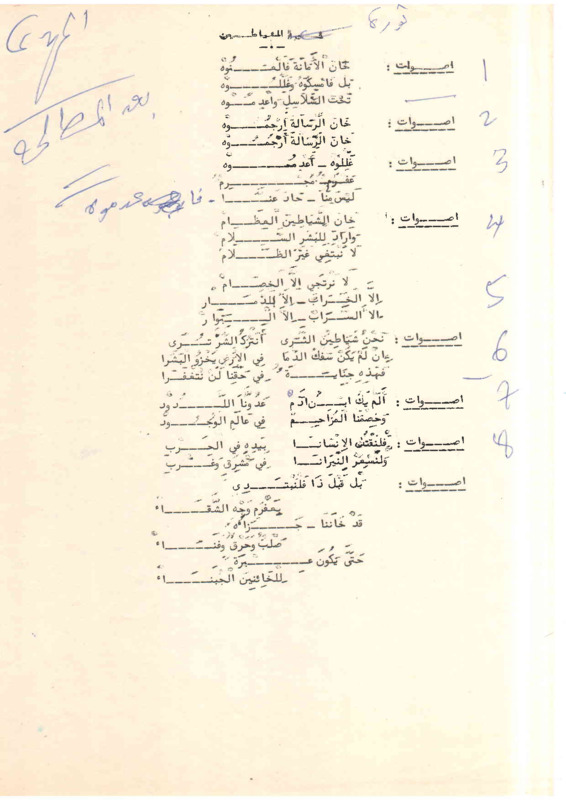 المواطنين
اصوات : خَانَ الأَمَانَةَ فَالْعَنُوهْ 1
بَل فَامْسِكُوهُ وَغَلِّلُوه
تَحْتَ السَّلَاسِلِ وَأعْدِمُوه
اصوات : خَانَ الرِّسَالَةَ أُرْجُمُوه 2
خَانَ الرِّسَالَةَ أُرْجُمُوه
اصوات : غَلِّلُوه - أَعْدِمُوه 3
مُجْرِمٌ
لَيْسَ مِنَّا - حَادَ عَنَّا
اصوات : خَانَ الشَّيَاطِينَ العِظَام 4
وَأرَادَ لِلبَشَرِ السَّلَام
لَا نَبْتَغِي غَيْرَ الظَّلَام
لَا نَرْتَجِي إلَّا الخِصَام
إلَّا الخَرَاب - إلَّا الدَّمَار 5
إلَّا السَّرَاب - إلَّا البَوَار
اصوات : نَحْنُ شَيَاطِينَ الثَّرَى أَنَتْرُكُ الشَّرَّ تُرَى 6
إنْ لَمْ يَكُنْ سَفْكُ الدِّمَا فِي الأرْضِ يَغْزُو البَشَرا
فَهَذِهِ جِنَايَة فِي حَقِّنَا لَنْ تُغْفَرَا
اصوات : أَلَمْ يَكُ ابْنُ آدَم عَدُوُّنَا اللَّدُود 7
وَخِصْمُنَا المُزَاحِم فِي عَالَمِ الوُجُود
اصوات : فَلْنُفْتِنِ الإنْسَانَا بِيَدِهِ فِي الحَرْب 8
وَلْنُسْعِرُ النِّيرَانَا فِي مَشْرِقٍ وَغَرْب
اصوات : بَلْ قَبْلَ ذَا فَلْنَبْتَدِي
وَجْهِ الشَّقَاء
قَدْ خَانَنَا - جَزَاؤُه
صَلْبٌ وَحَرْقٌ وَفَنَاء
حَتَّى يَكُونَ عِبْرَة
لِلخَائِنِينَ الجُبَنَاء